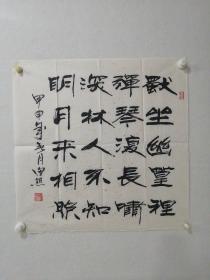 獨坐幽篁裡
彈琴復長嘯
深林人不知
明月來相照
甲申年